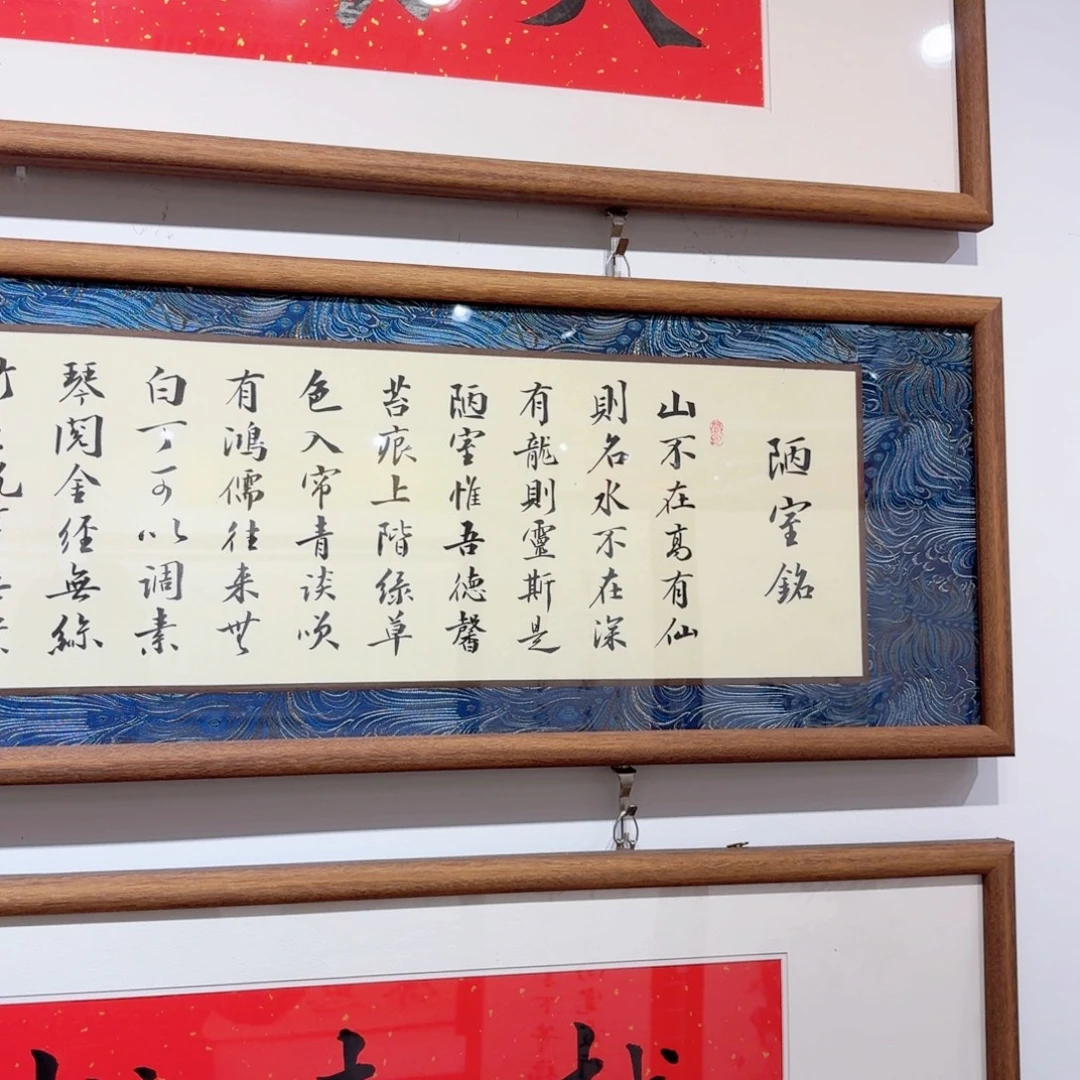 陋室銘
山不在高有仙
則名水不在深
有龍則靈斯是
陋室惟吾德馨
苔痕上階綠草
色入帘青談咲
有鴻儒往来無
白丁可以調素
琴閱金經無絲